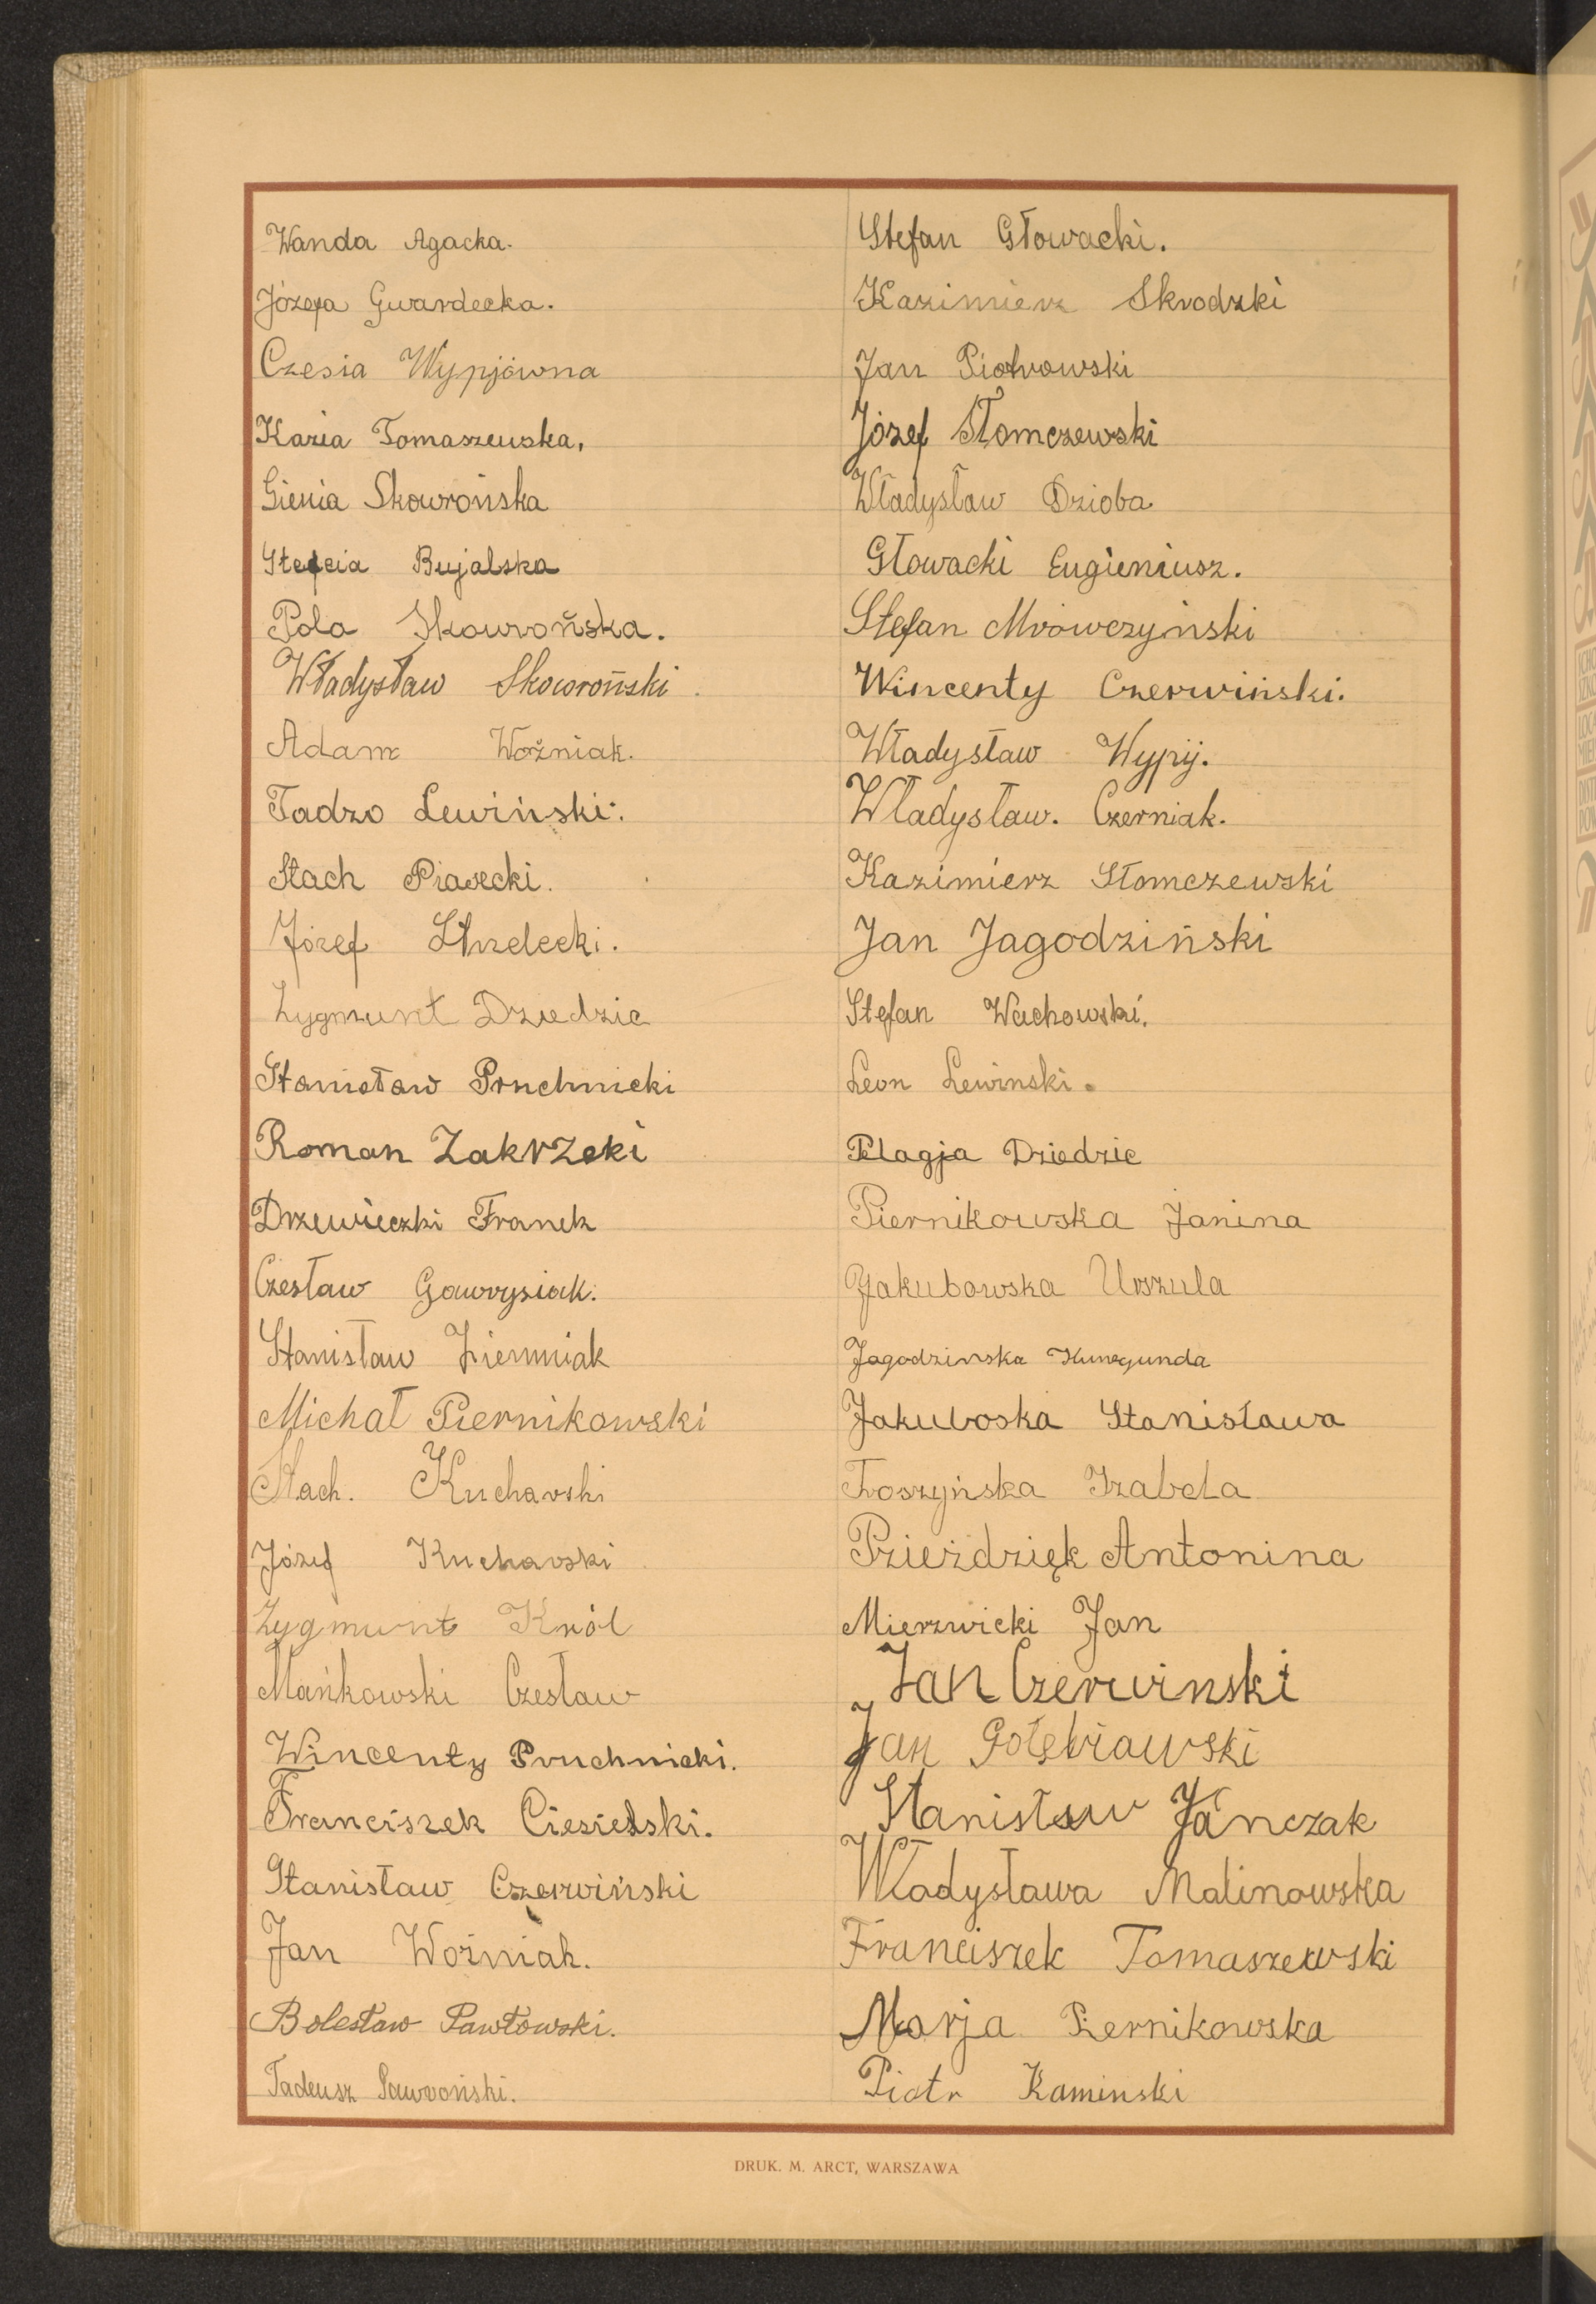 Wanda Agacka.
Józefa Gwardecka.
Czesia Wypjówna
Kazia Tomaszewska,
Gienia Skowrońska
Stefcia Bujalska
Pola Skowrońska.
Władysław Skowroński.
Adam Woźniak.
Tadzo Lewiński.
Stach Piasecki.
Józef Strzelecki.
Zygmunt Dziedzic
Stanisław Pruchnicki
Roman Zakrzeki
Drzewieczki Franek
Czesław Gawrysiak.
Stanisław Ziemniak
Michał Piernikowski
Stach. Kucharski
Józef Kucharski
Zygmunt Król
Mańkowski Czesław
Wincenty Pruchnicki.
Franciszek Ciesielski.
Stanisław Czerwiński
Jan Woźniak.
Bolesław Pawłowski.
Tadeusz
Stefan Głowacki.
Kazimierz Skrodzki
Jan Piotrowski
Józef Słomczewski
Władysław Dzioba
Głowacki Eugieniusz.
Stefan Mrówczyński
Wincenty Czerwiński.
Władysław Wypij.
Władysław. Czerniak.
Kazimierz Słomczewski
Jan Jagodziński
Stefan Wachowski.
Leon Lewinski.
Pelagja Dziedzic
Piernikowska Janina
Jakubowska Urszula
Jagodzinska Kunegunda
Jakuboska Stanisława
Troszyńska Izabela
Pzieździęk Antonina
Mierzwicki Jan
Jan Czerwinski
Jan Gołębiawski
Stanisław Jánczak
Władysława Malinowska
Franciszek Tomaszewski
Marja Piernikowska
Piotr Kaminski
DRUK. M. ARCT, WARSZAWA